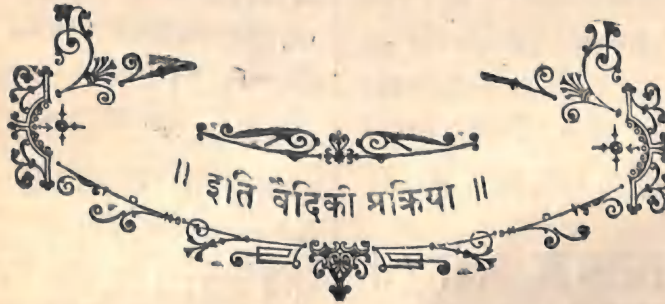 ॥ इति वैदिकी प्रक्रिया ॥